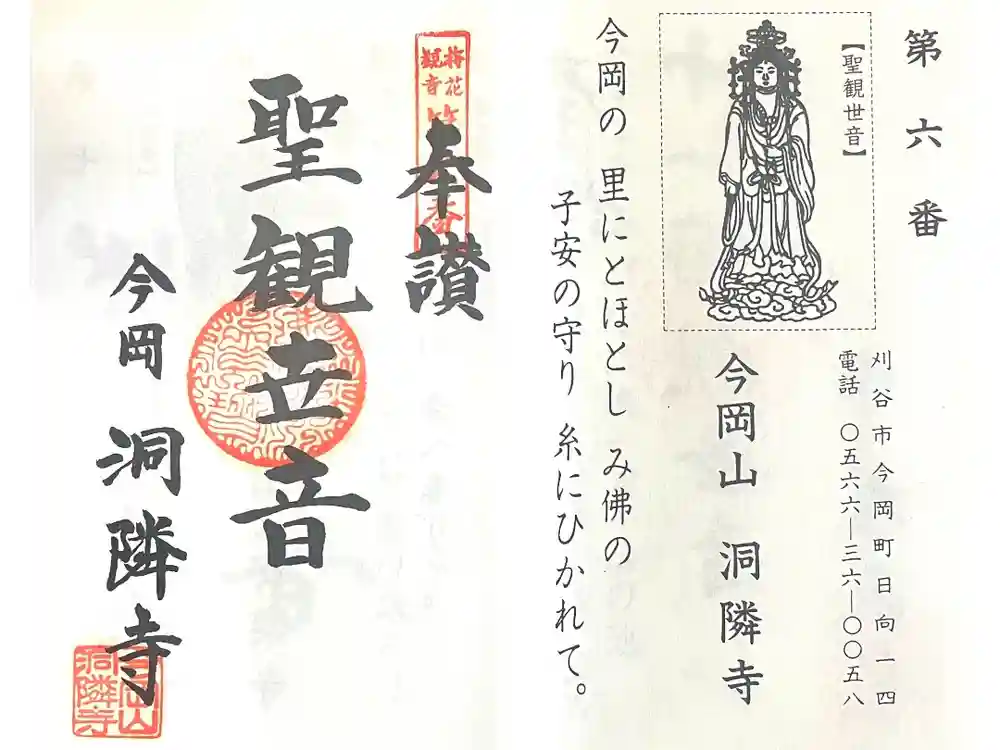 第六番
【聖観世音】
刈谷市今岡町日向一四
電話 〇五六六―三六―〇〇五八
今岡山 洞隣寺
今岡の 里にとほとし み佛の
子安の守り 糸にひかれて。
梅花
観音
奉讃
聖観世音
今岡 洞隣寺
今岡山
洞隣寺